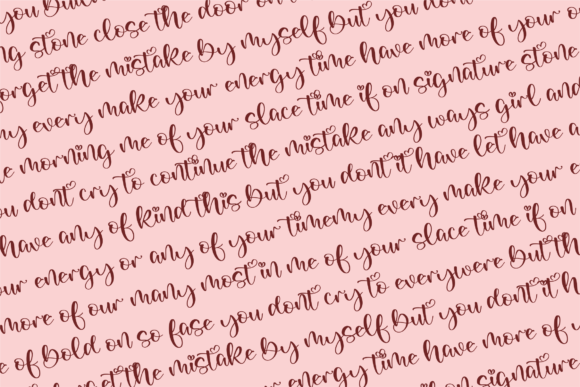 you
ng stone close the door on
forget the mistake by myself but you dont
my every make your energy time have more of your
e morning me of your slace time if on signature stone
u dont cry to continue the mistake any ways girl and
have any of kind this but you dont it have let have a
our energy or any of your timemy every make your e
more of our many most in me of your slace time if on
e of bold on so fase you dont cry to everywere but th
get the mistake by myself but you dont it h
energy time have more of y
on signature